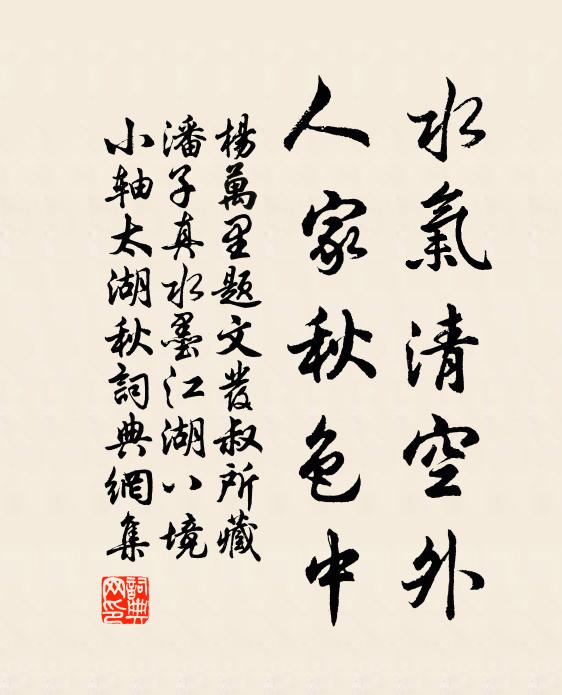 水氣清空外
人家秋色中
楊萬里題文發叔所藏
潘子真水墨江湖八境
小轴太湖秋詞典網集
詞典
网印